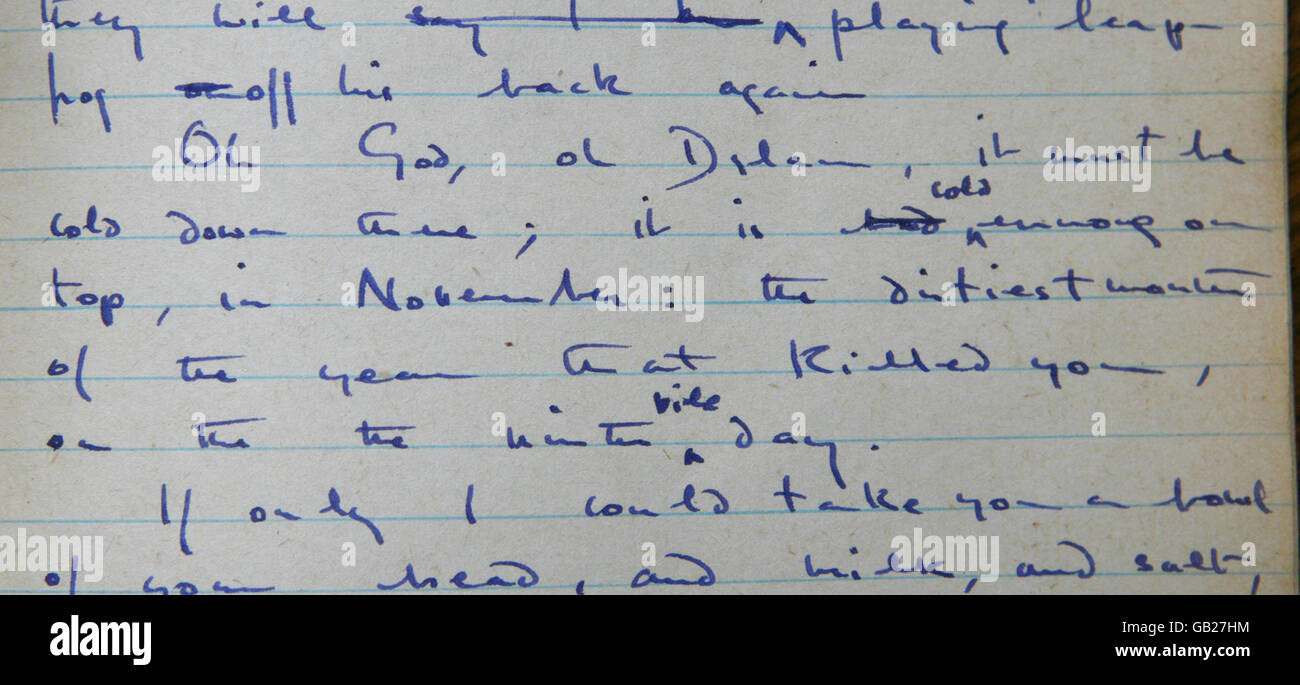 they will say I playing leap-
frog on off his back again
Oh God, oh Dylan, it must be
cold
cold down there; it is bad enough on
top, in November: the dirtiest month
of the year that killed you,
vile
on the the ninth day.
If only I could take you a bowl
of your bread, and milk, and salt,
alamy
Image ID: GB27HM
www.alamy.com